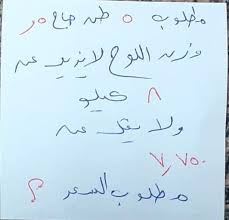 مطلوب ٥ طن صاج ٥ر
وزن اللوح لا يزيد عن
٨ كيلو
ولا يقل عن
٧,٧٥٠
مطلوب السعر ؟